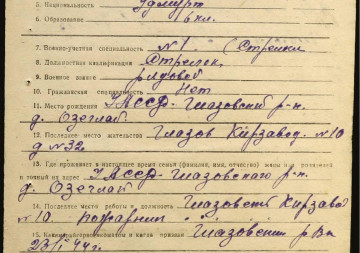 5. Национальность Удмурт
6. Образование 6 кл.
7. Военно-учетная специальность №1 (Стрелки
8. Должностная квалификация Стрелок
9. Военное звание рядовой
10. Гражданская специальность Нет
11. Место рождения УАССР Глазовский р-н.
д. Озегпай
12. Последнее место жительства Глазов Кирзавод №10
д №32
13. Где проживает в настоящее время семья (фамилия, имя, отчество) жены или родителей
и точный их адрес УАССР Глазовского р-н.
д. Озегпай
14. Последнее место работы и должность Глазовский Кирзавод
№10. пожарник
15. Каким и когда призван Глазовским рВк
23/I 44 г.